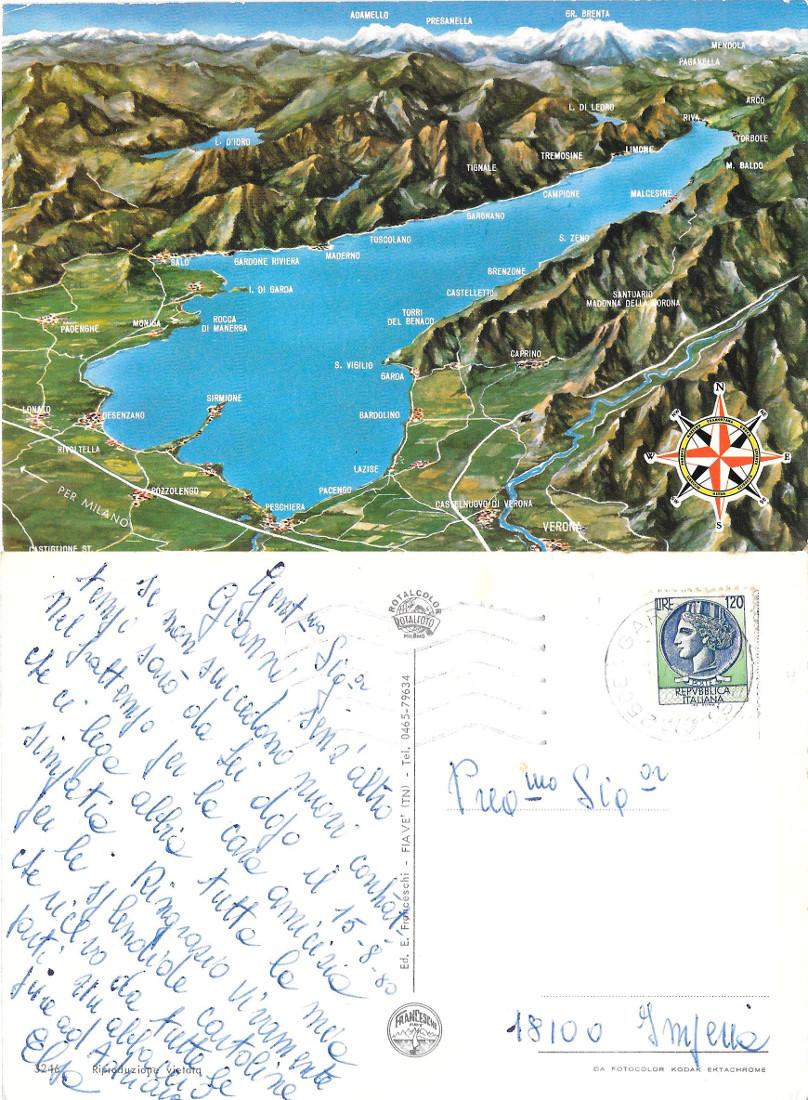 ADAMELLO
PRESANELLA
GR. BRENTA
MENDOLA
PAGANELLA
ARCO
L. DI LEDRO
RIVA
TORBOLE
L. D'IDRO
LIMONE
TREMOSINE
M. BALDO
TIGNALE
CAMPIONE
MALCESINE
GARGNANO
TOSCOLANO
S. ZENO
MADERNO
SALO
GARDONE RIVIERA
BRENZONE
I. DI GARDA
CASTELLETTO
SANTUARIO
MADONNA DELLA CORONA
TORRI
DEL BENACO
ROCCA
DI MANERBA
MONIGA
PADENGHE
CAPRINO
S. VIGILIO
GARDA
SIRMIONE
BARDOLINO
LONATO
DESENZANO
RIVOLTELLA
LAZISE
PACENGO
POZZOLENGO
PER MILANO
PESCHIERA
CASTELNUOVO DI VERONA
VERONA
CASTIGLIONE ST.
N
W
E
S
Gent.mo Sig.or
Gianni senz'altro
se non succedono nuovi contrat-
tempi sarò da Lei dopo il 15-8-80
Nel frattempo per la cara amicizia
che ci lega abbia tutta la mia
simpatia Ringrazio vivamente
per le splendide cartoline
che ricevo da tutte le
parti Un abbraccio
fino ad
Elsa
3246
Riproduzione vietata
Ed. E. Franceschi - FIAVE' (TN) - Tel. 0465-79634
ROTALCOLOR
ROTALFOTO
MILANO
FRANCESCHI
FIAVE
LIRE 120
POSTE
REPVBBLICA
ITALIANA
Preg.mo Sig.or
18100 Imperia
DA FOTOCOLOR KODAK EKTACHROME